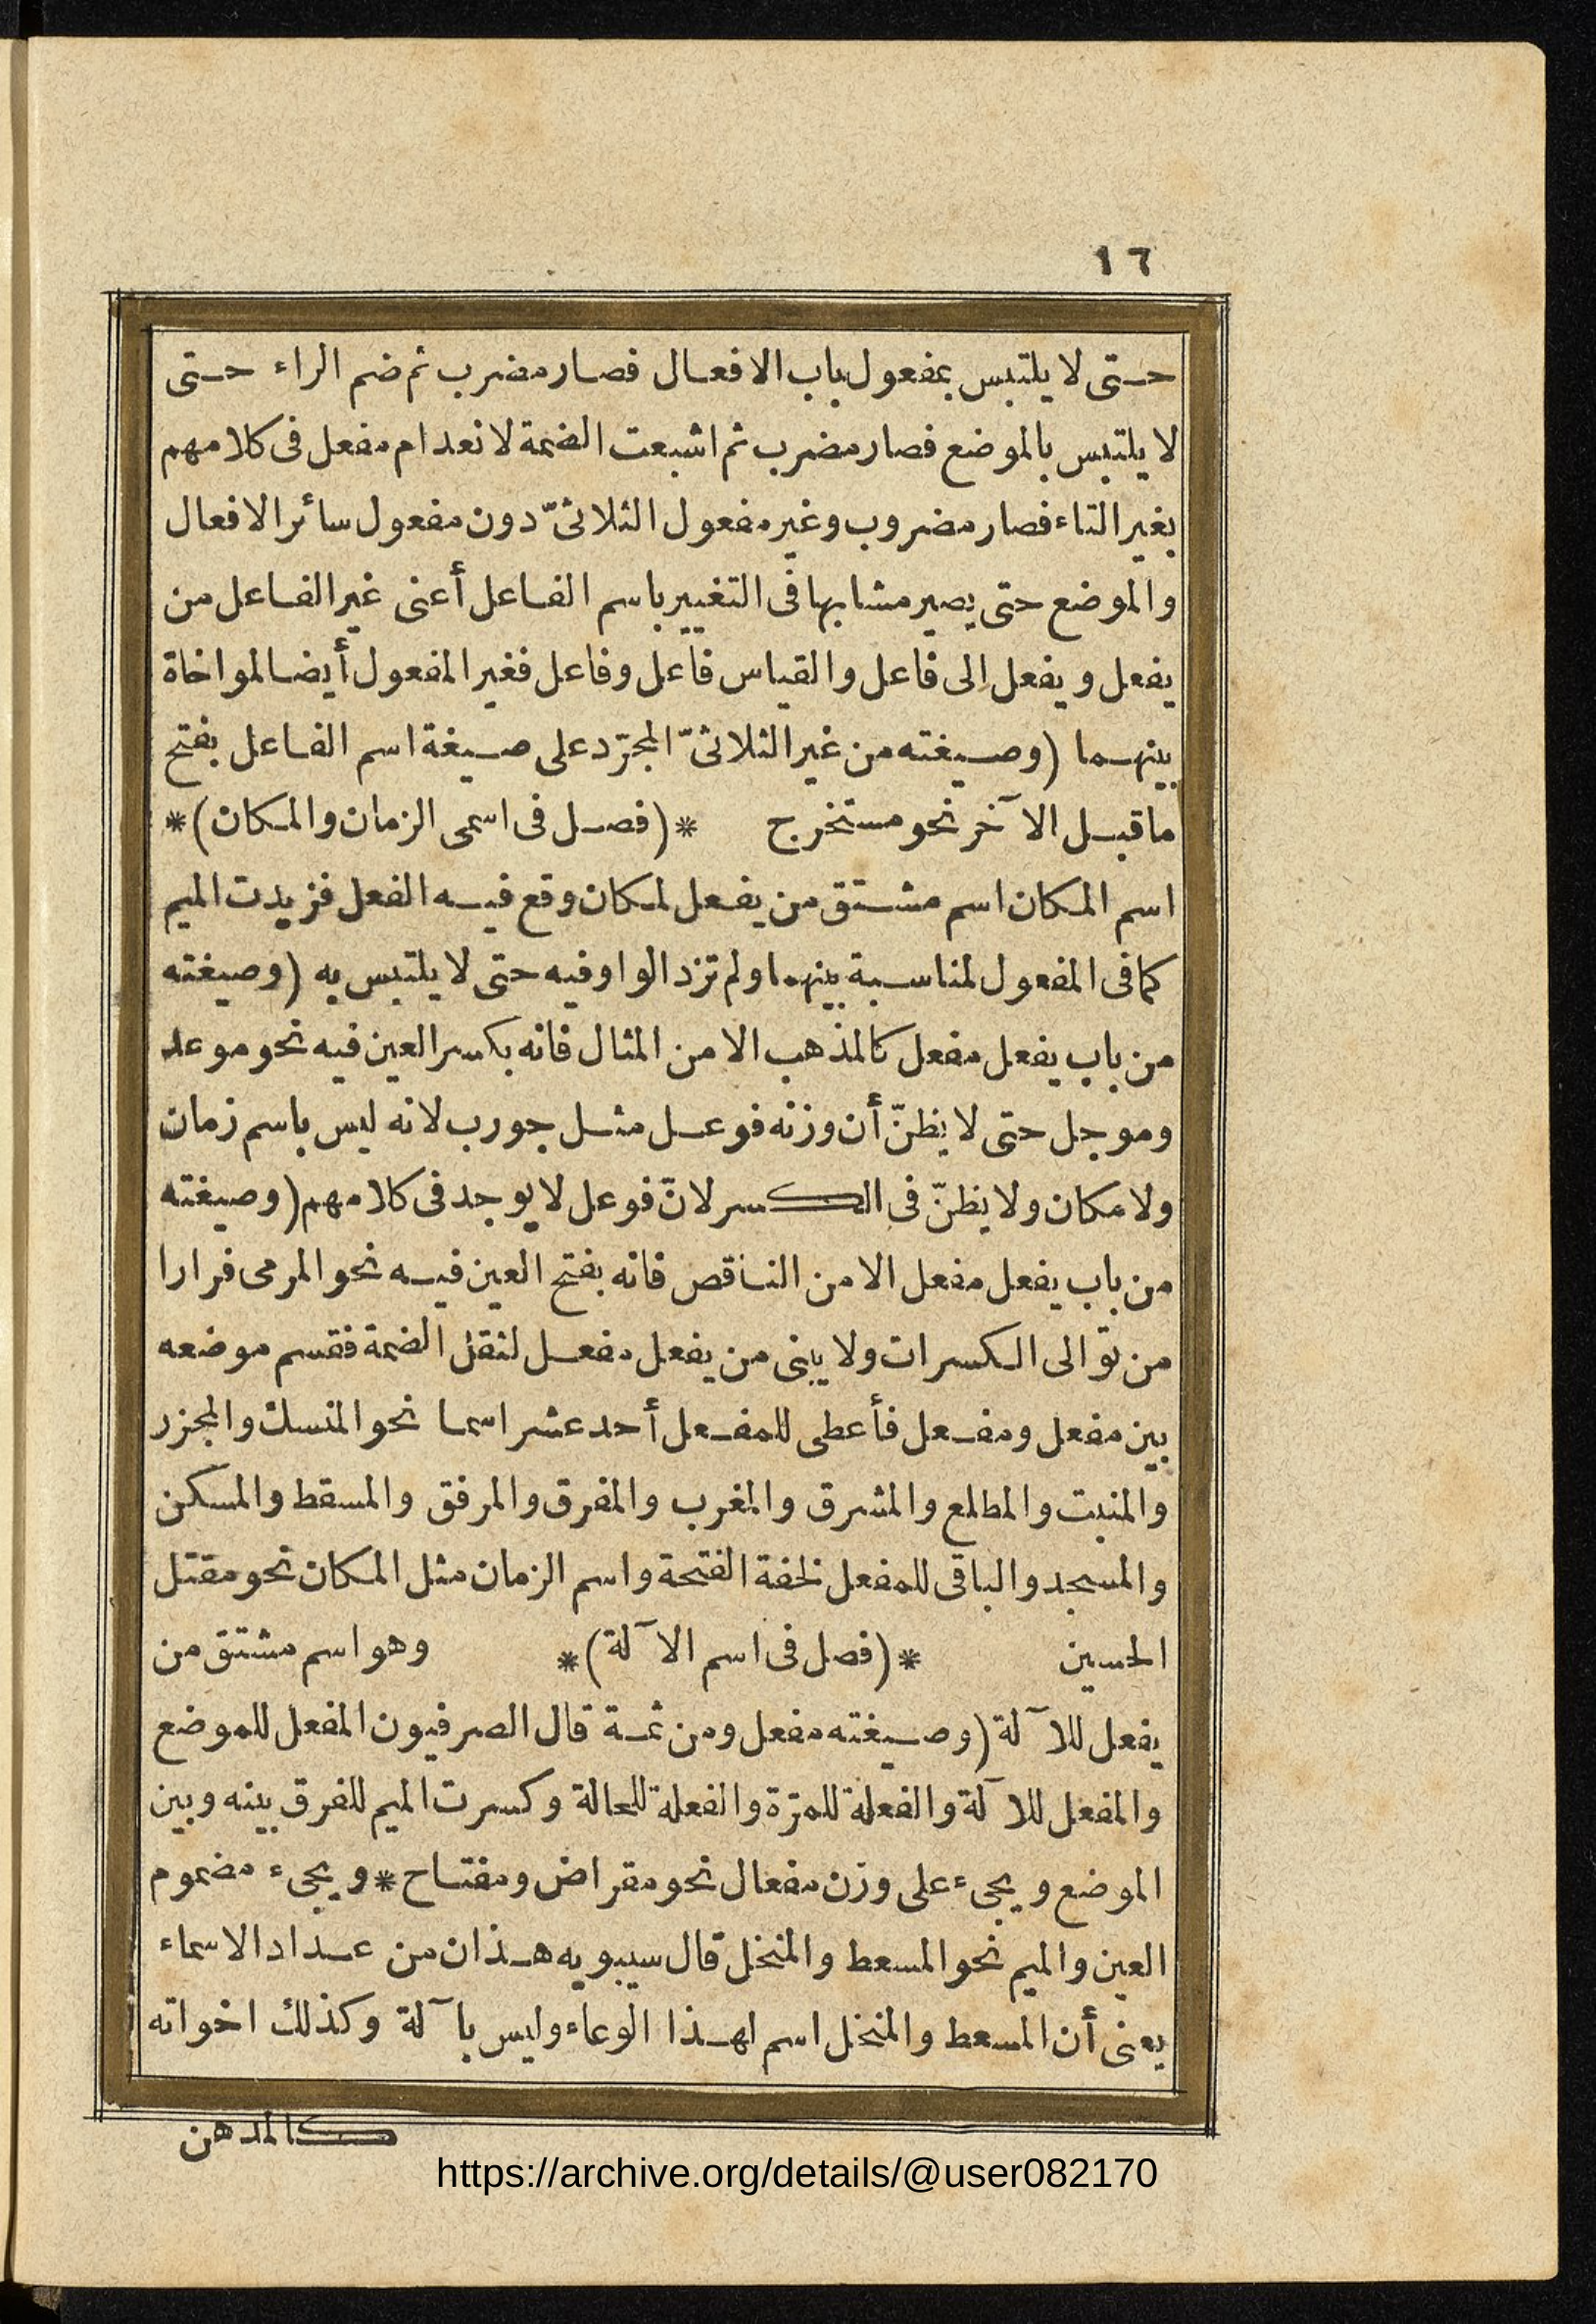 ١٦
حتى لا يلتبس بمفعول باب الافعال فصار مضرب ثم ضم الراء حتى
لا يلتبس بالموضع فصار مضرب ثم اشبعت الضمة لانعدام مفعل فى كلامهم
بغير التاء فصار مضروب وغير مفعول الثلاثىّ دون مفعول سائر الافعال
والموضع حتى يصير مشابها فى التغيير باسم الفاعل أعنى غير الفاعل من
يفعل ويفعل إلى فاعل والقياس فاعل وفاعل فغير المفعول أيضا لمواخاة
بينهما (وصيغته من غير الثلاثىّ المجرّد على صيغة اسم الفاعل بفتح
ماقبل الآخر نحو مستخرج * (فصل فى اسمى الزمان والمكان) *
اسم المكان اسم مشتق من يفعل لمكان وقع فيه الفعل فزيدت الميم
كما فى المفعول لمناسبة بينهما ولم تزد الواو فيه حتى لا يلتبس به (وصيغته
من باب يفعل مفعل كالمذهب الا من المثال فانه بكسر العين فيه نحو موعد
وموجل حتى لا يظنّ أن وزنه فوعل مثل جورب لانه ليس باسم زمان
ولا مكان ولا يظنّ فى الكسر لانّ فوعل لا يوجد فى كلامهم (وصيغته
من باب يفعل مفعل الا من الناقص فانه بفتح العين فيه نحو المرمى فرارا
من توالى الكسرات ولا يبنى من يفعل مفعل لثقل الضمة فقسم موضعه
بين مفعل ومفعل فأعطى للمفعل أحد عشر اسما نحو المنسك والمجزر
والمنبت والمطلع والمشرق والمغرب والمفرق والمرفق والمسقط والمسكن
والمسجد والباقى للمفعل لخفة الفتحة واسم الزمان مثل المكان نحو مقتل
الحسين * (فصل فى اسم الآلة) * وهو اسم مشتق من
يفعل للآلة (وصيغته مفعل ومن ثمة قال الصرفيون المفعل للموضع
والمفعل للآلة والفعلة للمرّة والفعلة للحالة وكسرت الميم للفرق بينه وبين
الموضع ويجىء على وزن مفعال نحو مقراض ومفتاح * ويجىء مضموم
العين والميم نحو المسعط والمنخل قال سيبويه هذان من عداد الاسماء
يعنى أن المسعط والمنخل اسم لهذا الوعاء وليس بآلة وكذلك اخواته
كالمدهن
https://archive.org/details/@user082170